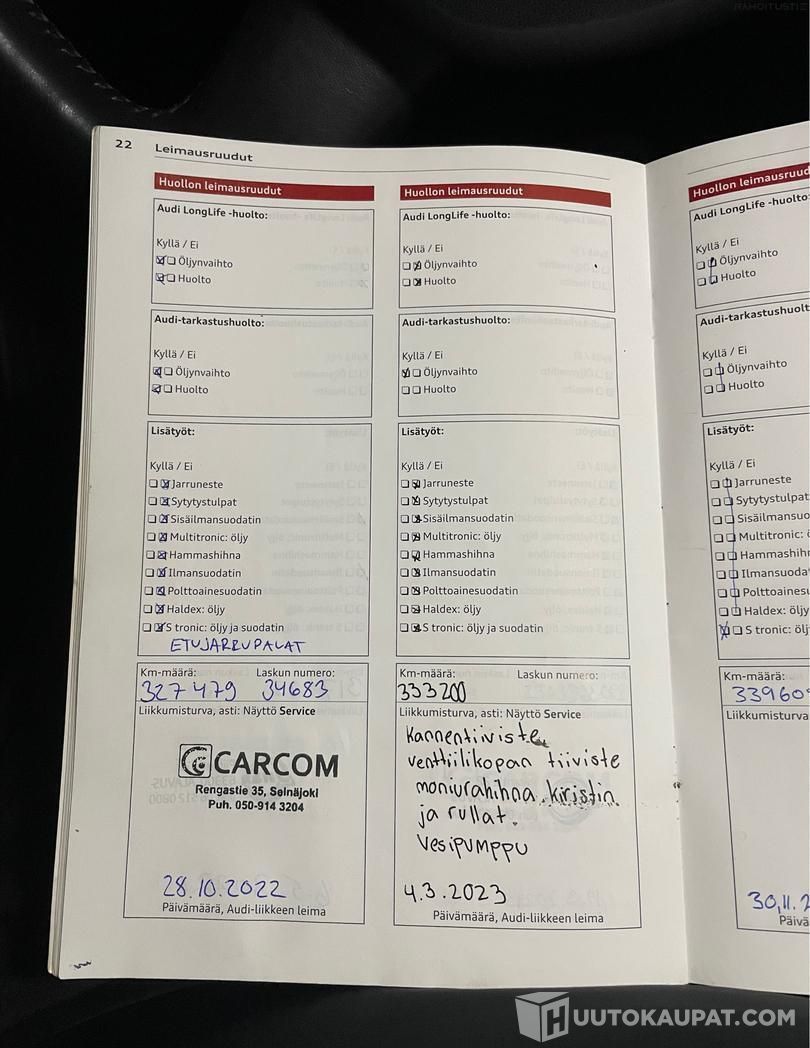 RAHOITUSTIE
22
Leimausruudut
Huollon leimausruudut
Audi LongLife -huolto:
Kyllä / Ei
Öljynvaihto
Huolto
Audi-tarkastushuolto:
Kyllä / Ei
Öljynvaihto
Huolto
Lisätyöt:
Kyllä / Ei
Jarruneste
Sytytystulpat
Sisäilmansuodatin
Multitronic: öljy
Hammashihna
Ilmansuodatin
Polttoainesuodatin
Haldex: öljy
S tronic: öljy ja suodatin
ETUJARRUPALAT
Km-määrä: Laskun numero:
327479 34683
Liikkumisturva, asti: Näyttö Service
CARCOM
Rengastie 35, Seinäjoki
Puh. 050-914 3204
28.10.2022
Päivämäärä, Audi-liikkeen leima
Huollon leimausruudut
Audi LongLife -huolto:
Kyllä / Ei
Öljynvaihto
Huolto
Audi-tarkastushuolto:
Kyllä / Ei
Öljynvaihto
Huolto
Lisätyöt:
Kyllä / Ei
Jarruneste
Sytytystulpat
Sisäilmansuodatin
Multitronic: öljy
Hammashihna
Ilmansuodatin
Polttoainesuodatin
Haldex: öljy
S tronic: öljy ja suodatin
Km-määrä: Laskun numero:
333200
Liikkumisturva, asti: Näyttö Service
Kannentiiviste
venttiilikopan tiiviste
moniurahihna kiristin
ja rullat.
Vesipumppu
4.3.2023
Päivämäärä, Audi-liikkeen leima
Huollon leimausruud
Audi LongLife -huolto:
Kyllä / Ei
Öljynvaihto
Huolto
Audi-tarkastushuolt
Kyllä / Ei
Öljynvaihto
Huolto
Lisätyöt:
Kyllä / Ei
Jarruneste
Sytytystulpat
Sisäilmansuo
Multitronic:
Hammashihn
Ilmansuoda
Polttoainesu
Haldex: öljy
S tronic: öl
Km-määrä:
339609
Liikkumisturva
30.11.2
Päivä
HUUTOKAUPAT.COM